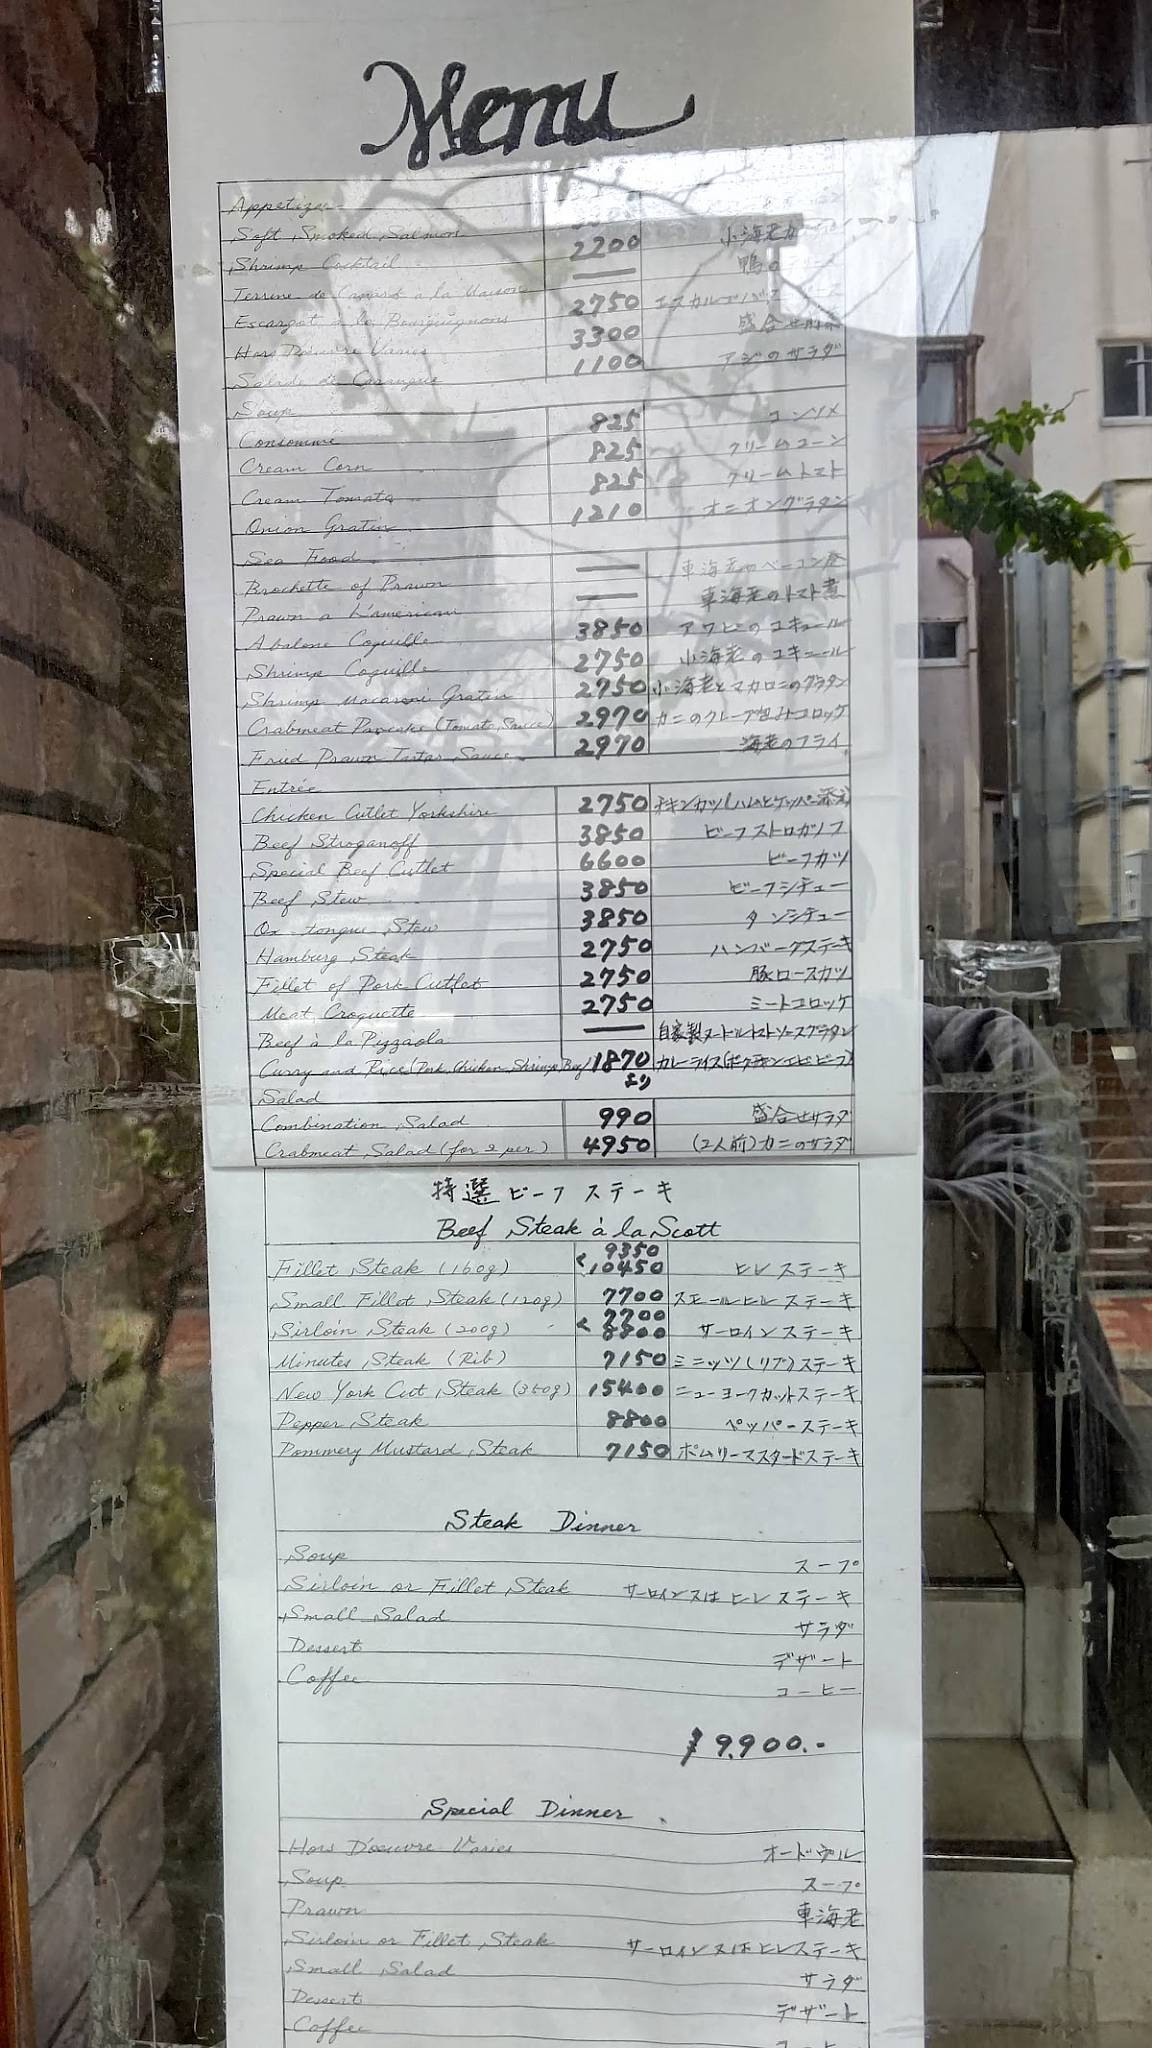 Menu
Appetizer
Soft Smoked Salmon
Shrimp Cocktail 2200 小海老カ
Terrine de Canard à la Maison — 鴨の
Escargot à la Bourguignons 2750 エスカルゴ
Hors D'oeuvre Varies 3300 盛合せ前菜
Salade de 1100 アジのサラダ
Soup
Consommé 825 コンソメ
Cream Corn 825 クリームコーン
Cream Tomato 825 クリームトマト
Onion Gratin 1210 オニオングラタン
Sea Food
Brochette of Prawn — 車海老のベーコン巻
Prawn a L'american — 車海老のトマト煮
Abalone Coquille 3850 アワビのコキュール
Shrimp Coquille 2750 小海老のコキュール
Shrimp Macaroni Gratin 2750 小海老とマカロニのグラタン
Crabmeat Pancake (Tomato Sauce) 2970 カニのクレープ包みコロッケ
Fried Prawn Tartar Sauce 2970 海老のフライ
Entrée
Chicken Cutlet Yorkshire 2750 チキンカツ(ハムとケッパー添え)
Beef Stroganoff 3850 ビーフストロガノフ
Special Beef Cutlet 6600 ビーフカツ
Beef Stew 3850 ビーフシチュー
Ox-tongue Stew 3850 タンシチュー
Hamburg Steak 2750 ハンバーグステーキ
Fillet of Pork Cutlet 2750 豚ロースカツ
Meat Croquette 2750 ミートコロッケ
Beef à la Pizzaola — 自家製ヌードルトマトソースグラタン
Curry and Rice (Pork, Chicken, Shrimp, Beef) 1870より カレーライス(ポークチキンエビビーフ)
Salad
Combination Salad 990 盛合せサラダ
Crabmeat Salad (for 2 per) 4950 (2人前)カニのサラダ
特選ビーフステーキ
Beef Steak à la Scott
Fillet Steak (160g) < 9350 10450 ヒレステーキ
Small Fillet Steak (120g) 7700 スモールヒレステーキ
Sirloin Steak (200g) < 7700 8800 サーロインステーキ
Minutes Steak (Rib) 7150 ミニッツ(リブ)ステーキ
New York Cut Steak (350g) 15400 ニューヨークカットステーキ
Pepper Steak 8800 ペッパーステーキ
Pommery Mustard Steak 7150 ポムリーマスタードステーキ
Steak Dinner
Soup スープ
Sirloin or Fillet Steak サーロイン又はヒレステーキ
Small Salad サラダ
Dessert デザート
Coffee コーヒー
¥9,900.-
Special Dinner
Hors D'oeuvre Varies オードヴル
Soup スープ
Prawn 車海老
Sirloin or Fillet Steak サーロイン又はヒレステーキ
Small Salad サラダ
Dessert デザート
Coffee